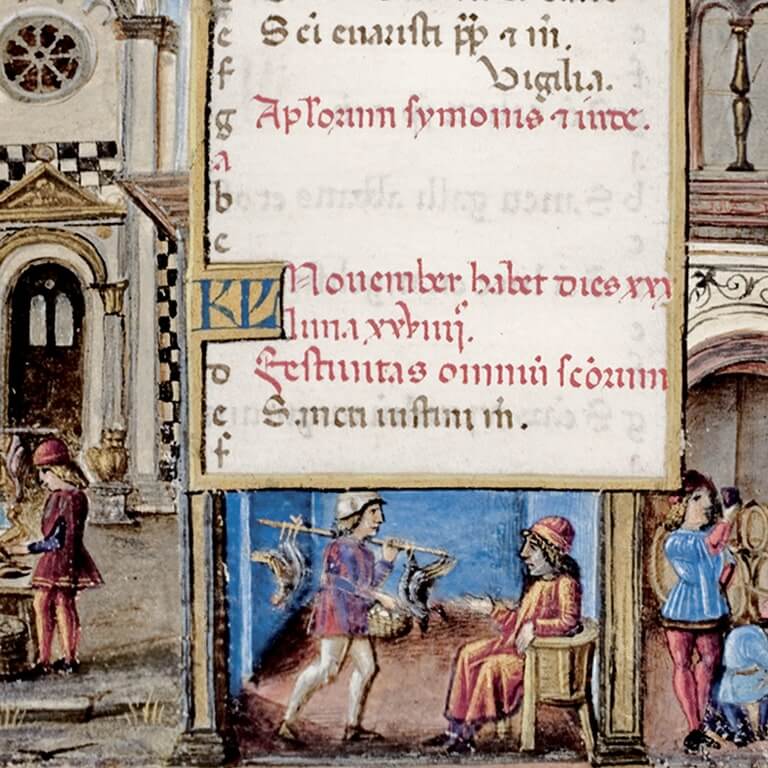 e Sci euaristi pp ⁊ m̃.
f Vigilia.
g Apl'orum symonis ⁊ iude.
a
b
c
KL Nouember habet dies xxx
luna xxviiij.
d Festiuitas omniũ scõrum
e Sancti iustini m̃.
f